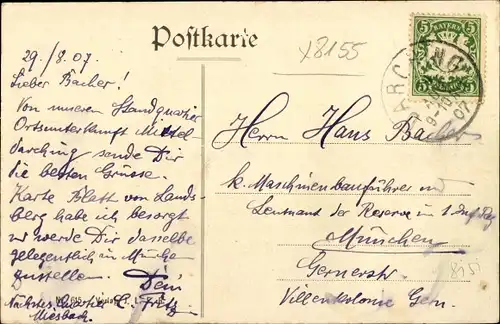 Postkarte
X8155
29./8.07.
Lieber Bacher!
Von unserem Standquartier
Ortsunterkunft Mittel-
darching sende Dir
die besten Grüsse.
Karte Blatt von Lands-
berg habe ich besorgt
u werde Dir dasselbe
gelegentlich in München
zustellen. Dein
Nächstes Quartier
Miesbach.
BAYERN
5 5
Herrn Hans Bacher
k. Maschinenbauführer und
Leutnant der Reserve im 1. Inf. Rg.
München
Gernerstr.
Villenkolonie Gern.
8155